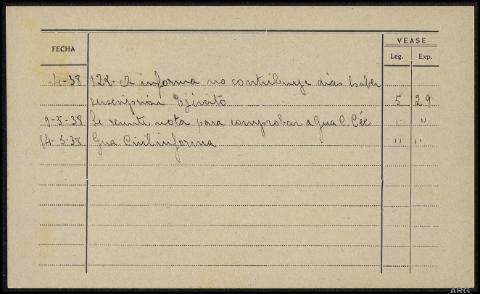 VEASE
FECHA Leg. Exp.
-4-38 128-A informa no contribuye días haber
suscripción Ejército 5 29
9-5-38 Se remiti nota para comprobar a Gua C. Các " "
14-5-38 Gua. Civil informa " "